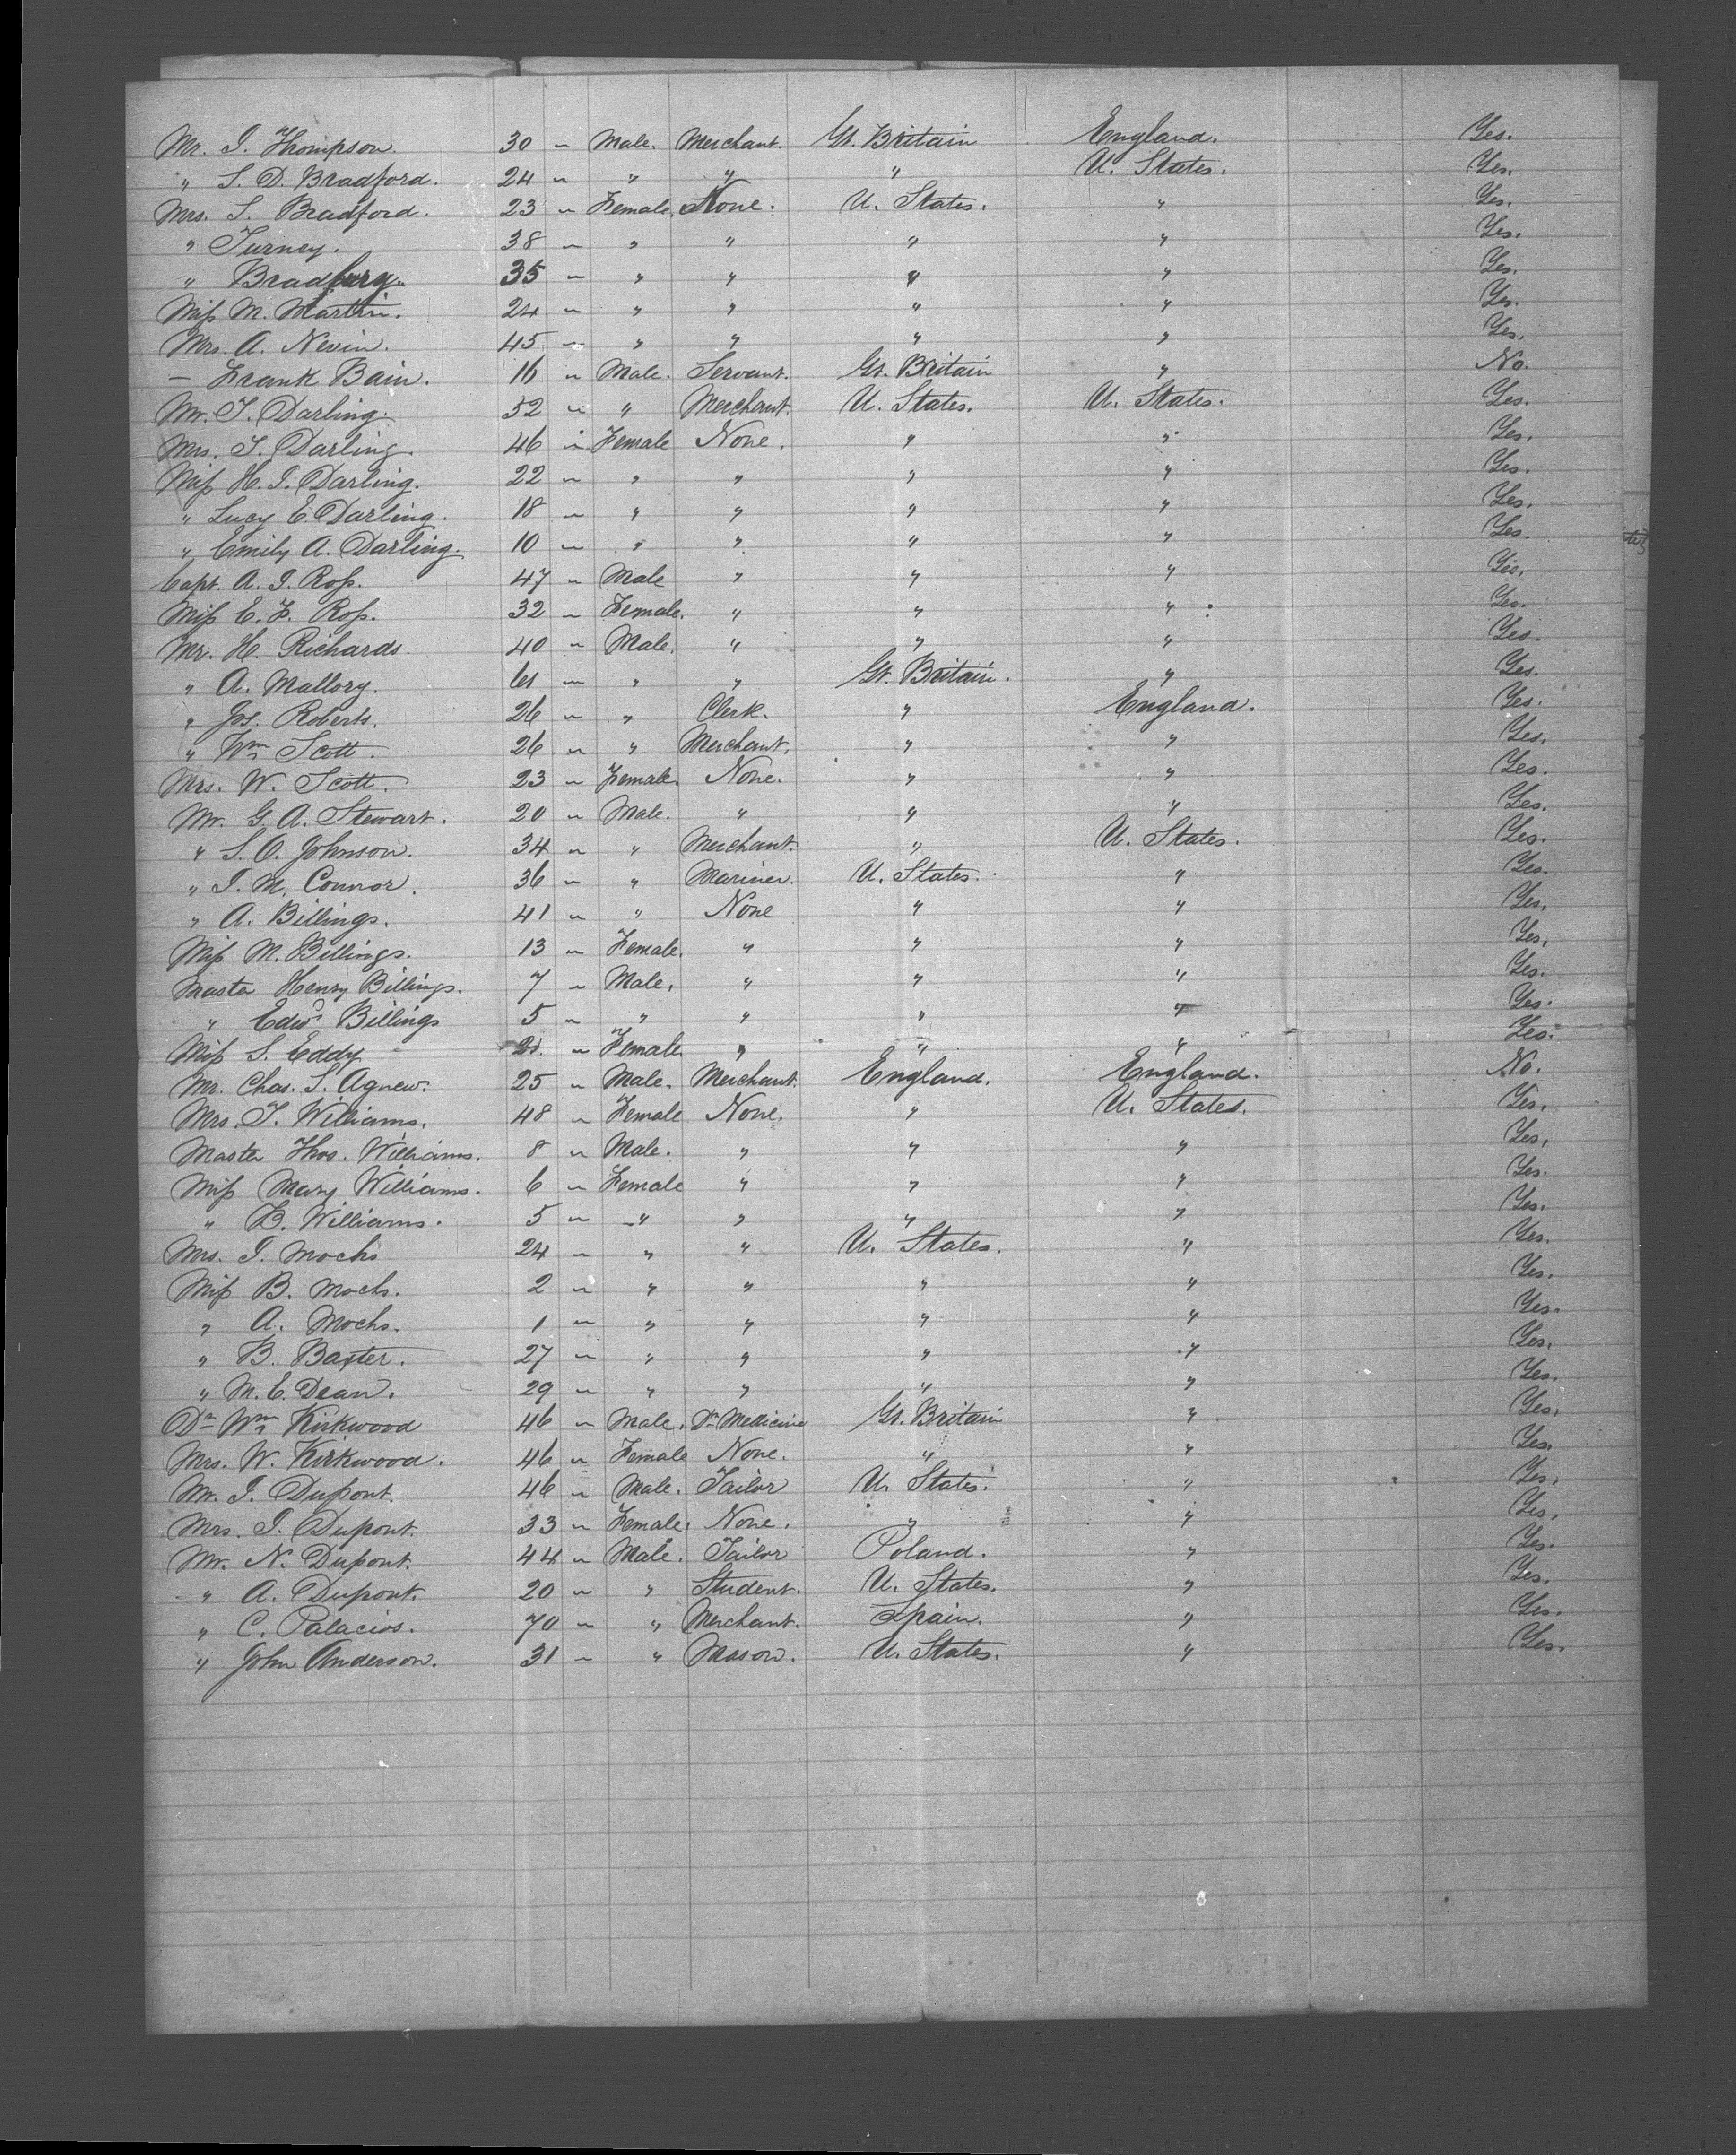 Mr. J. Thompson. 30 " Male. Merchant. Gt. Britain England. Yes.
" S. D. Bradford. 24 " " " " U. States. Yes.
Mrs. S. Bradford. 23 " Female. None. U. States. " Yes.
" Turney. 38 " " " " " Yes.
" Bradbury. 35 " " " " " Yes.
Miss M. Martin. 24 " " " " " Yes.
Mrs. A. Nevin. 45 " " " " " Yes.
— Frank Bain. 16 " Male. Servant. Gt. Britain " No.
Mr. T. Darling. 52 " " Merchant. U. States. U. States. Yes.
Mrs. T. Darling. 46 " Female None. " " Yes.
Miss H. J. Darling. 22 " " " " " Yes.
" Lucy E. Darling. 18 " " " " " Yes.
" Emily A. Darling. 10 " " " " " Yes.
Capt. A. J. Ross. 47 " Male " " " Yes.
Miss E. F. Ross. 32 " Female. " " " Yes.
Mr. H. Richards. 40 " Male. " " " Yes.
" A. Mallory. 61 " " " Gt. Britain. " Yes.
" Jos. Roberts. 26 " " Clerk. " England. Yes.
" Wm Scott. 26 " " Merchant. " " Yes.
Mrs. W. Scott. 23 " Female. None. " " Yes.
Mr. G. A. Stewart. 20 " Male. " " " Yes.
" S. O. Johnson. 34 " " Merchant. " U. States. Yes.
" J. M. Connor. 36 " " Mariner. U. States. " Yes.
" A. Billings. 41 " " None " " Yes.
Miss M. Billings. 13 " Female. " " " Yes.
Master Henry Billings. 7 " Male. " " " Yes.
" Edwd Billings 5 " " " " " Yes.
Miss S. Eddy " Female. " " " Yes.
Mr. Chas. S. Agnew. 25 " Male. Merchant. England. England. No.
Mrs. T. Williams. 48 " Female None. " U. States. Yes.
Master Thos. Williams. 8 " Male. " " " Yes.
Miss Mary Williams. 6 " Female " " " Yes.
" Williams. 5 " " " " " Yes.
Mrs. J. Mochs 24 " " " U. States. " Yes.
Miss B. Mochs. 2 " " " " " Yes.
" A. Mochs. 1 " " " " " Yes.
" B. Baxter. 27 " " " " " Yes.
" M. E. Dean. 29 " " " " " Yes.
Dr Wm Kirkwood 46 " Male. Dr Medicine Gt. Britain " Yes.
Mrs. W. Kirkwood. 46 " Female None. " " Yes.
Mr. J. Dupont. 46 " Male. Tailor U. States. " Yes.
Mrs. J. Dupont. 33 " Female. None. " " Yes.
Mr. N. Dupont. 44 " Male. Tailor Poland. " Yes.
" A. Dupont. 20 " " Student. U. States. " Yes.
" C. Palacios. 70 " " Merchant. Spain. " Yes.
" John Anderson. 31 " " Mason. U. States. " Yes.